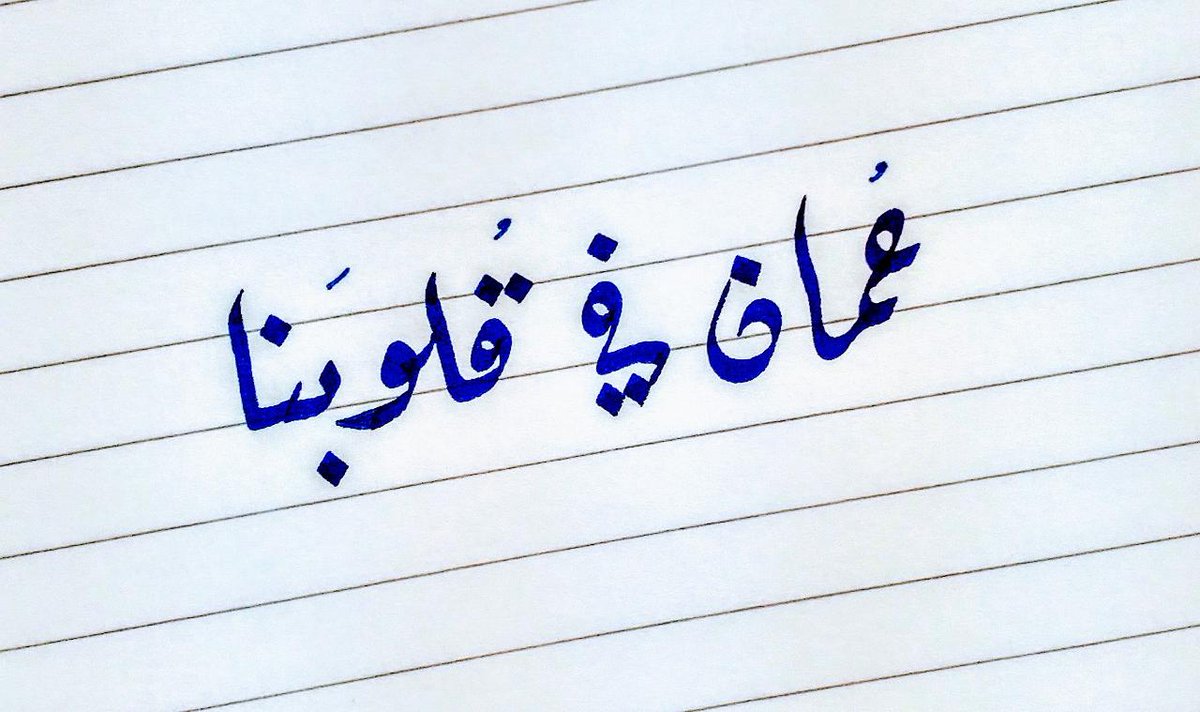 عُمان في قُلوبنَا